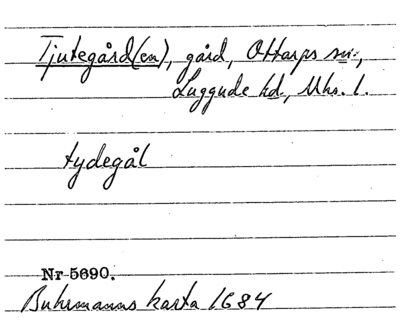 Tjutegård(en), gård, Ottarps sn.,
Luggude hd., Mhs. l.
tydegål
Nr 5690.
Buhrmanns karta 1684